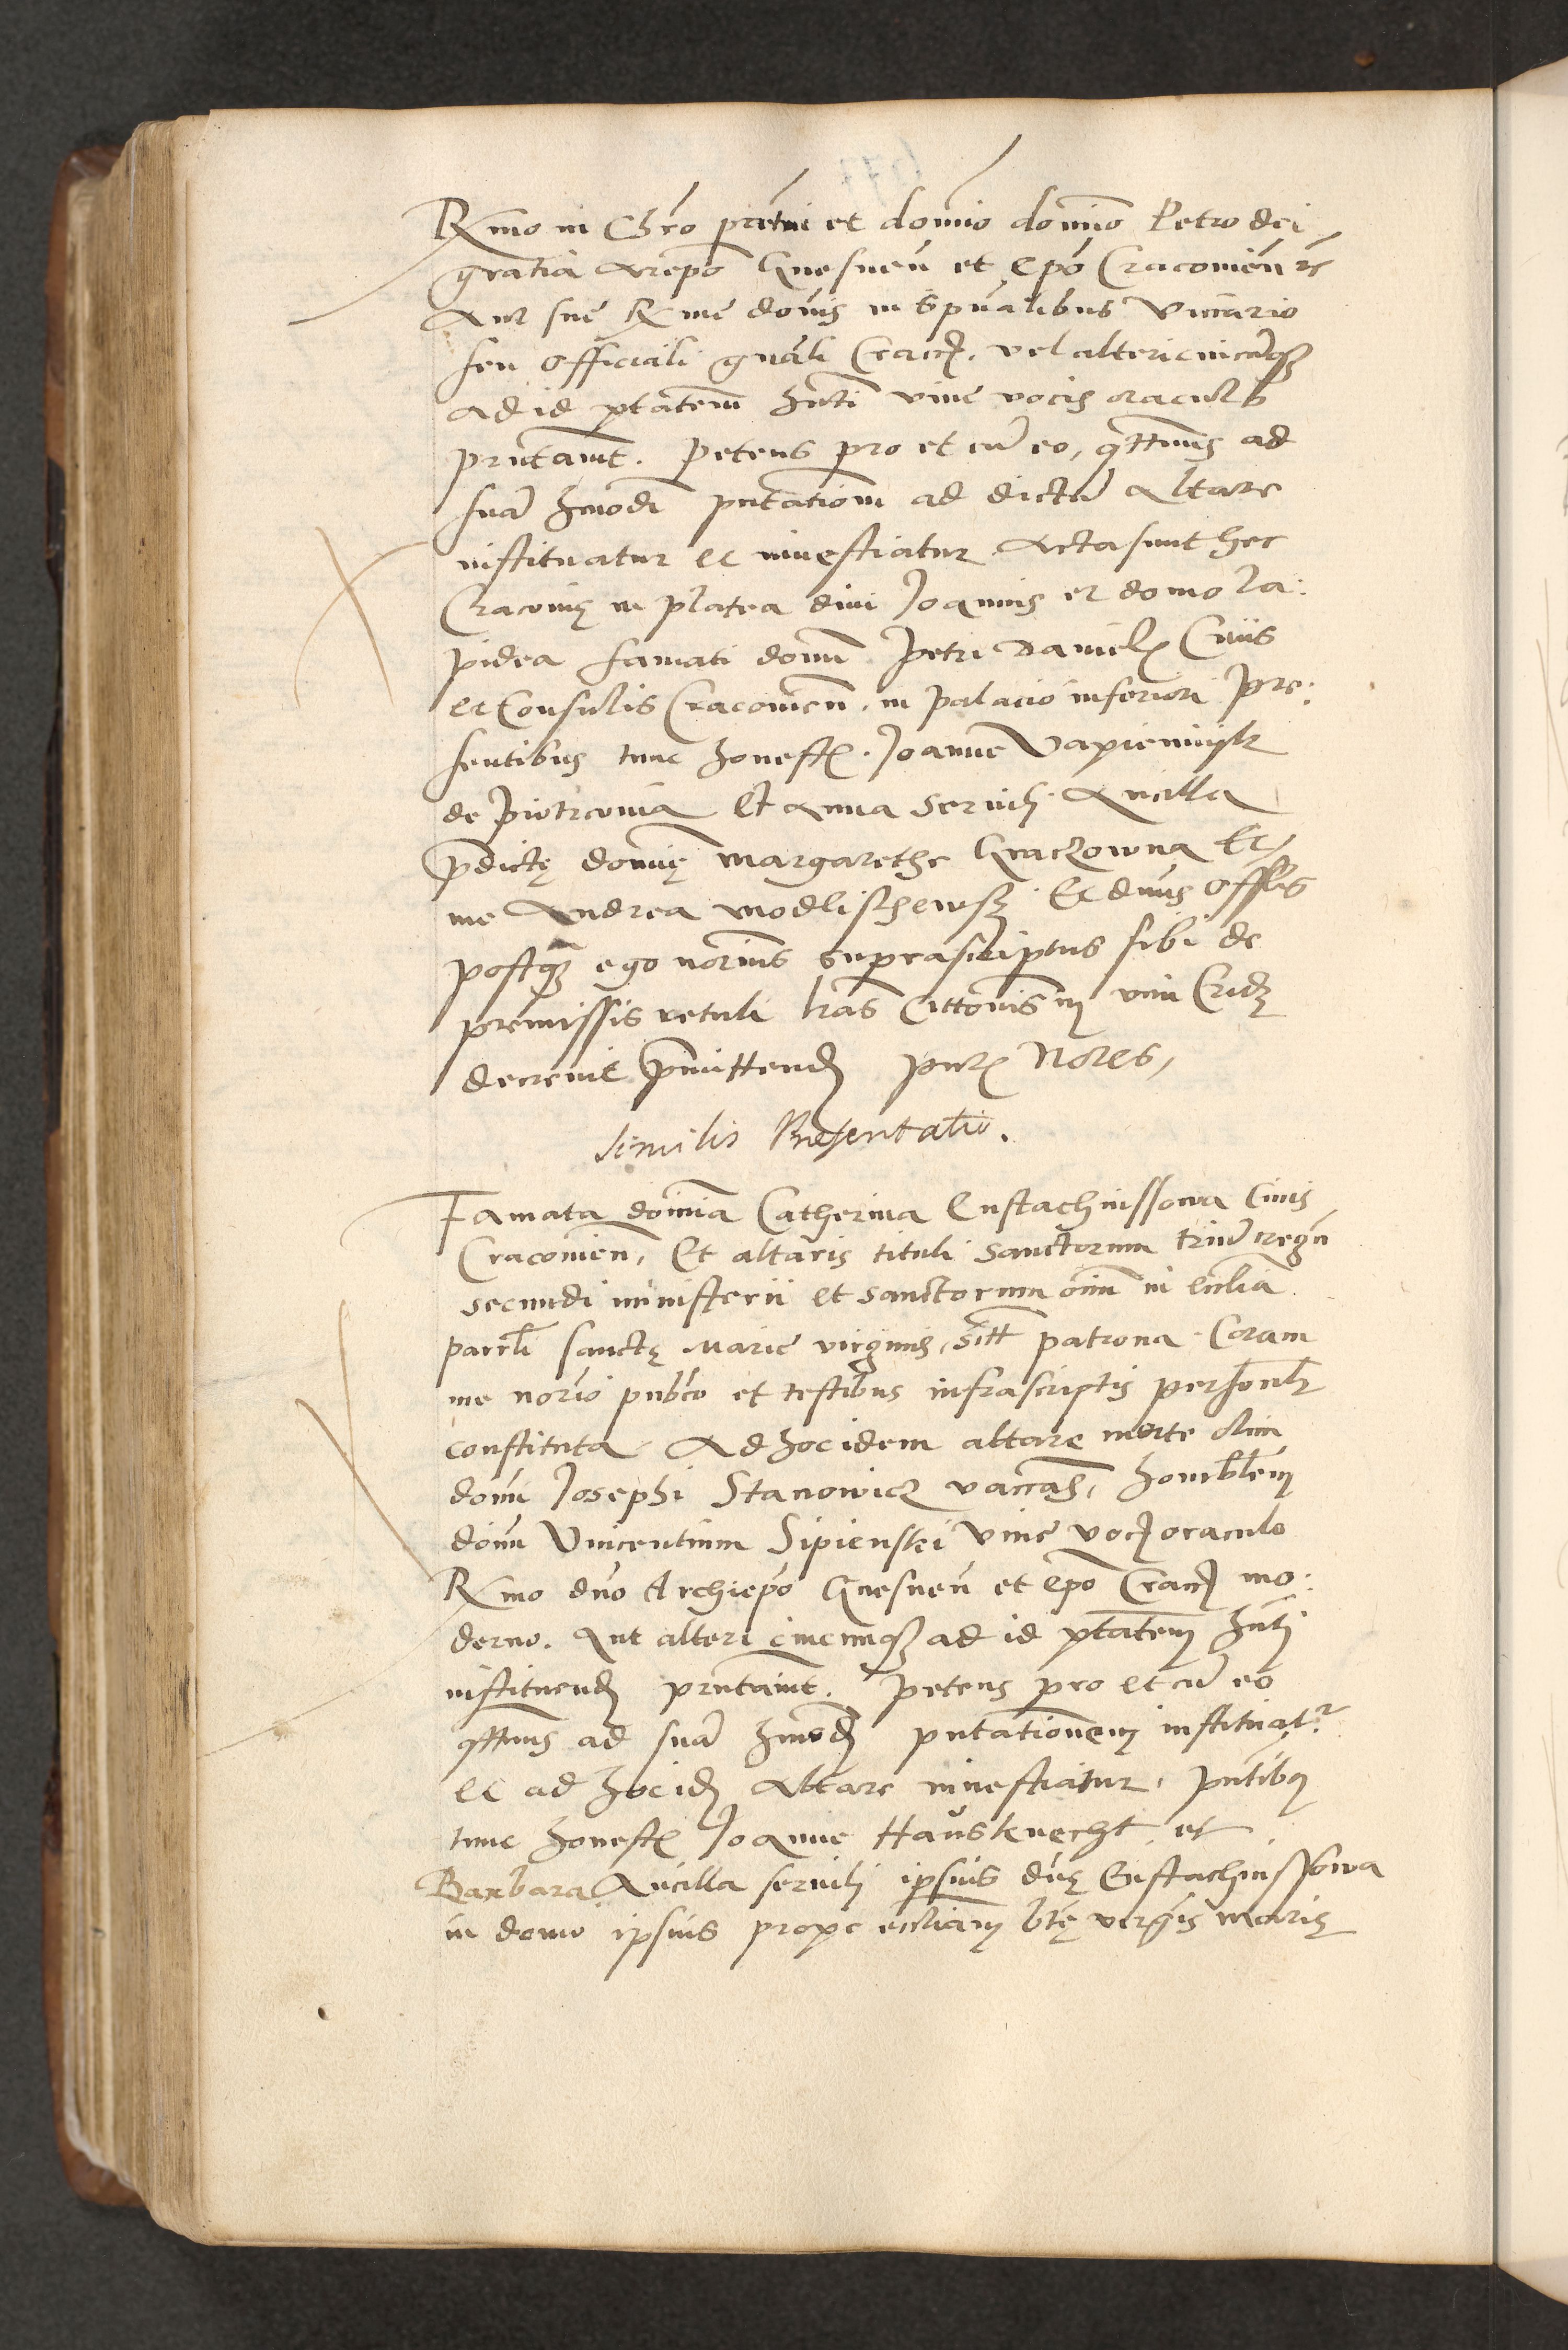 Rmo in Chro patri et domio domino Petro dei
gratia Arepo Gnesnen et epo Cracovien etc
Aut sue Rme donis in spualibus Vicario
seu officiali gnali Crac. vel alteri cuicunq
ad id ptatem hnti vive vocis oraculo
prntavit. Petens pro et cu eo, qttnus ad
sua hmodi pntatiom ad dictu altare
instituatur et investiatur Acta sunt hec
Cracovie in platea divi Joannis et domo la:
pidea famati domi Petri Daniel Civis
et Consulis Cracovien. in palacio inferiori pre:
sentibus tunc honest. Joanne Vapiennyk
de Piotrcovia Et Anna servili Ancilla
pdicte domne Margarethe Graczowna Et
me Andrea Modlischewsz Et dnus offlis
postq ego norius suprascriptus sibi de
premissis retuli lras Cittonis in vim Crid
decrevit pmittend pnt Nores,
Similis Presentatio.
Famata domina Catherina Eustachinssowa Civis
Cracovien, Et altaris tituli sanctorum triu regu
secundi ministerii et sanctorum oim in ecclia
parrli sancte Marie virginis, sitt patrona. Coram
me norio publico et testibus infrascriptis personlr
constituta Ad hoc idem altare morte olim
domi Josephi Stanowicz vacans, honorblem
domi Vincentium Sipienski vive voc oraculo
Rmo dno Archiepo Gnesnen et epo Crac mo:
derno. Aut alteri cuicunq ad id ptatem hnti
instituend prntavit. Petens pro et cu eo
qttnus ad sua hmodi pntationem instituatr
et ad hoc id Altare investiatur. pntibus
tunc honest Joanne Hausknecht et
Barbara Ancilla servili ipsius dne Eustachinssowa
in domo ipsius prope eccliam bte virgis Marie